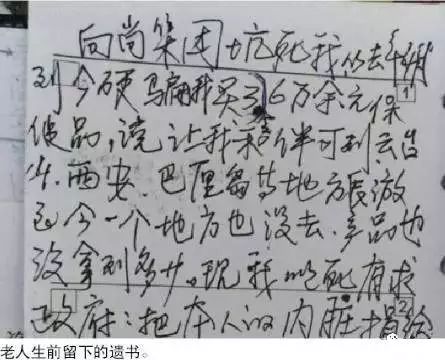 向尚集团坑死我从去年
到今硬骗我买了6万余元保
健品,说让我和老伴可到云台
山、西安、巴厘岛等地方旅游
至今一个地方也没去.产品也
没拿到多少。现我以死有求
政府:把本人的内脏捐给
1
2
老人生前留下的遗书。